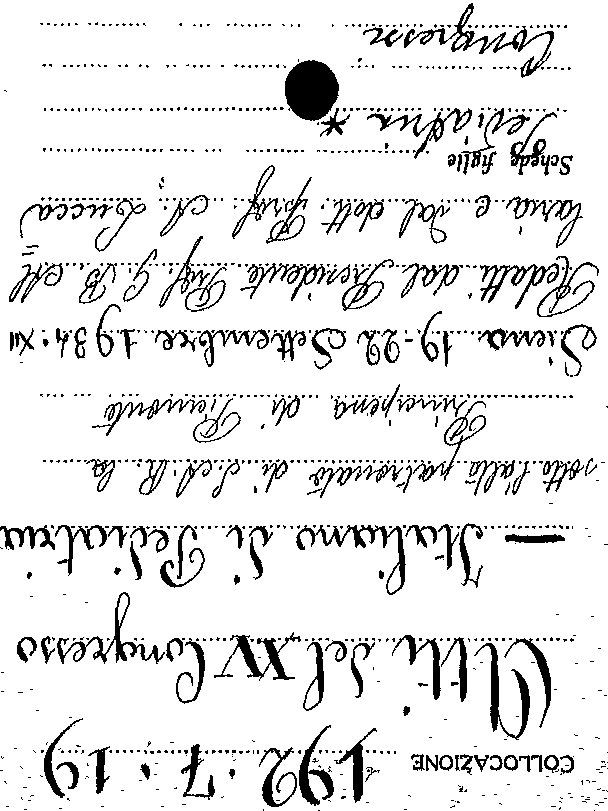 COLLOCAZIONE 192.7.19
Atti del XV Congresso
— Italiano di Pediatria
sotto l'alto patronato di S.A.R. la
Principessa di Piemonte
Siena 19-22 Settembre 1934.XII
Redatti dal Presidente Prof. G. B. Al=
laria e dal dott. Prof. A. Lucca
Schede figlie
Pediatria *
Congressi